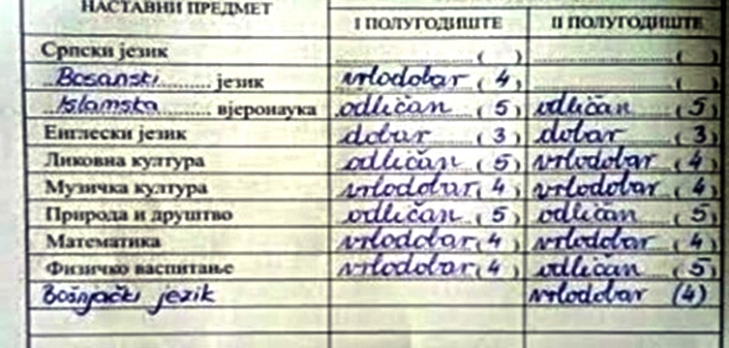 НАСТАВНИ ПРЕДМЕТ
I ПОЛУГОДИШТЕ II ПОЛУГОДИШТЕ
Српски језик ( ) ( )
Bosanski језик vrlodobar (4) ( )
Islamska вјеронаука odličan (5) odličan (5)
Енглески језик dobar (3) dobar (3)
Ликовна култура odličan (5) vrlodobar (4)
Музичка култура vrlodobar (4) vrlodobar (4)
Природа и друштво odličan (5) odličan (5)
Математика vrlodobar (4) vrlodobar (4)
Физичко васпитање vrlodobar (4) odličan (5)
Bošnjački jezik vrlodobar (4)